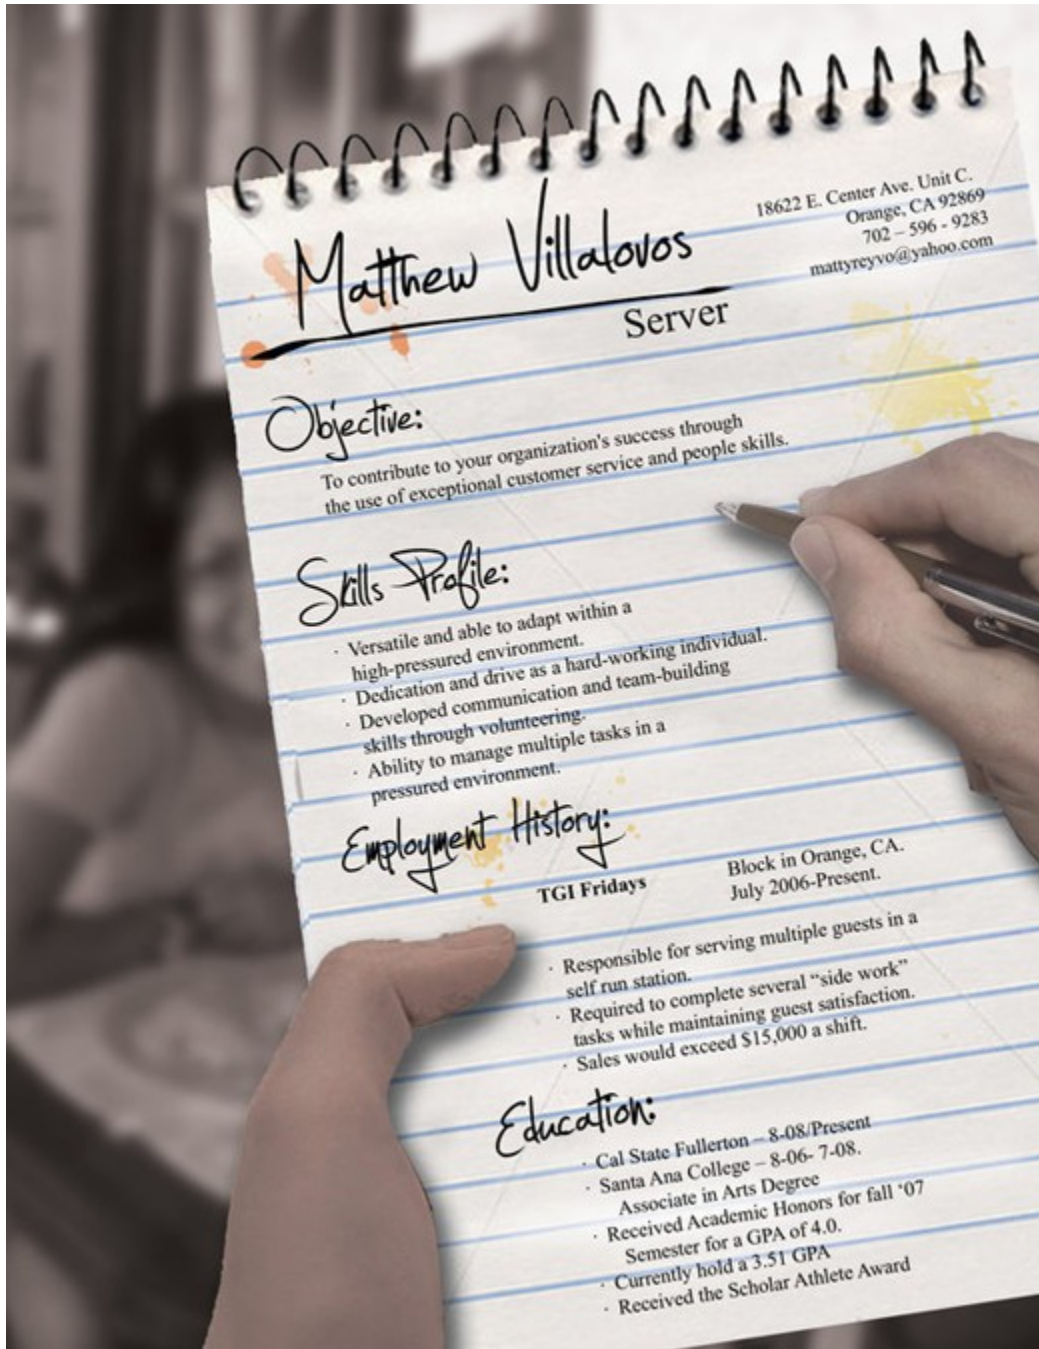 Matthew Villalovos
Server
18622 E. Center Ave. Unit C.
Orange, CA 92869
702 – 596 - 9283
mattyreyvo@yahoo.com
Objective:
To contribute to your organization's success through
the use of exceptional customer service and people skills.
Skills Profile:
· Versatile and able to adapt within a
high-pressured environment.
· Dedication and drive as a hard-working individual.
· Developed communication and team-building
skills through volunteering.
· Ability to manage multiple tasks in a
pressured environment.
Employment History:
TGI Fridays
Block in Orange, CA.
July 2006-Present.
· Responsible for serving multiple guests in a
self run station.
· Required to complete several “side work”
tasks while maintaining guest satisfaction.
· Sales would exceed $15,000 a shift.
Education:
· Cal State Fullerton – 8-08/Present
· Santa Ana College – 8-06- 7-08.
Associate in Arts Degree
· Received Academic Honors for fall ‘07
Semester for a GPA of 4.0.
· Currently hold a 3.51 GPA
· Received the Scholar Athlete Award